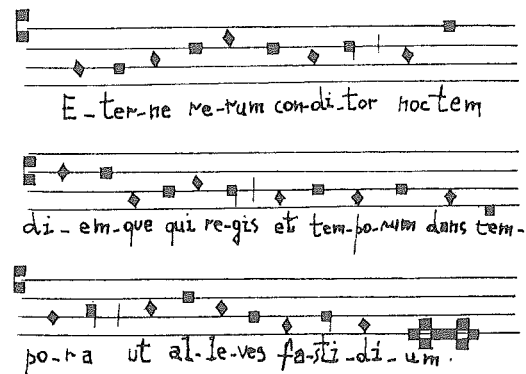 E-ter-ne re-rum con-di-tor noctem
di-em-que qui re-gis et tem-po-rum dans tem-
po-ra ut al-le-ves fa-sti-di-um.